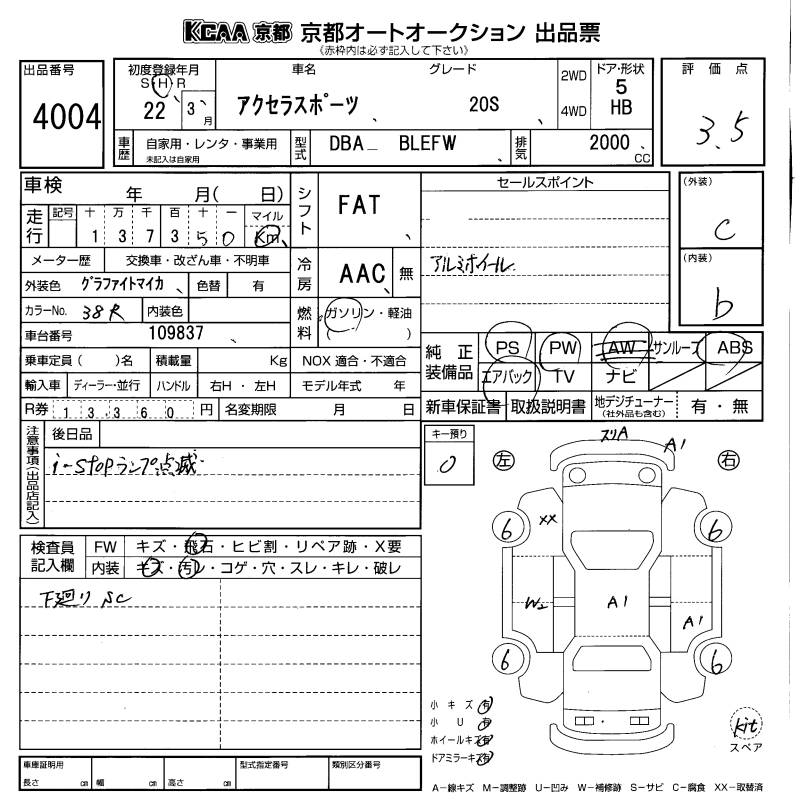 KCAA 京都 京都オートオークション 出品票
《赤枠内は必ず記入して下さい》
出品番号
4004
初度登録年月
S H R
22 3 月
車名
アクセラスポーツ
グレード
20S
2WD
4WD
ドア・形状
5
HB
評価点
3.5
車歴
自家用・レンタ・事業用
未記入は自家用
型式
DBA_ BLEFW
排気
2000
CC
車検
年 月( 日)
走行
記号 十 万 千 百 十 一 マイル
1 3 7 3 5 0 Km
メーター歴 交換車・改ざん車・不明車
外装色 グラファイトマイカ 色替 有
カラーNo. 38R 内装色
車台番号 109837
シフト
FAT
冷房
AAC 無
燃料
ガソリン・軽油
( )
乗車定員( )名 積載量 Kg NOX 適合・不適合
輸入車 ディーラー・並行 ハンドル 右H・左H モデル年式 年
R券 13360 円 名変期限 月 日
セールスポイント
アルミホイール
(外装)
C
(内装)
b
純正装備品
PS PW AW サンルーフ ABS
エアバック TV ナビ
新車保証書 取扱説明書 地デジチューナー 有・無
(社外品も含む)
注意事項(出品店記入)
後日品
i-stopランプ点滅
キー預り
0
左 右
スリA
A1
6 6
XX
W2
A1
A1
6 6
検査員記入欄
FW キズ・飛石・ヒビ割・リペア跡・X要
内装 キズ・汚レ・コゲ・穴・スレ・キレ・破レ
下廻り SC
小キズ 有
小U 有
ホイールキズ 有
ドアミラーキズ 有
kit
スペア
車庫証明用
長さ cm 幅 cm 高さ cm
型式指定番号
類別区分番号
A-線キズ M-調整跡 U-凹み W-補修跡 S-サビ C-腐食 XX-取替済